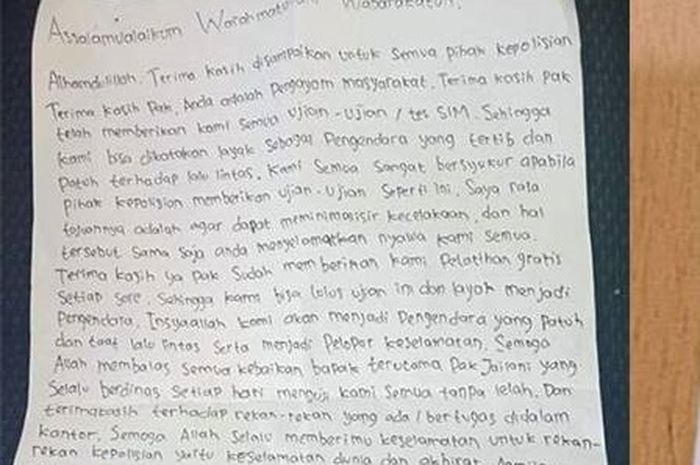 Assalamualaikum Warahmatullahi Wabarakatuh.
Alhamdulillah. Terima kasih disampaikan untuk semua pihak kepolisian
Terima kasih Pak, Anda adalah Pengayom masyarakat. Terima kasih Pak
telah memberikan kami semua ujian-ujian / tes SIM. Sehingga
kami bisa dikatakan layak sebagai Pengendara yang tertib dan
Patuh terhadap lalu lintas. Kami semua sangat bersyukur apabila
Pihak kepolisian memberikan ujian-ujian seperti ini. Saya rasa
tujuannya adalah agar dapat meminimasisir kecelakaan, dan hal
tersebut sama saja anda menyelamatkan nyawa kami semua.
Terima kasih ya pak sudah memberikan kami Pelatihan gratis
Setiap Sore. Sehingga kami bisa lolos ujian ini dan layak menjadi
Pengendara. Insyaallah kami akan menjadi Pengendara yang Patuh
dan taat lalu lintas serta menjadi Pelopor keselamatan. Semoga
Allah membalas semua kebaikan bapak terutama Pak Jailani yang
Selalu berdinas setiap hari menguji kami semua tanpa lelah. Dan
terimakasih terhadap rekan-rekan yang ada / bertugas didalam
kantor. Semoga Allah selalu memberimu keselamatan untuk rekan-
rekan kepolisian yaitu keselamatan dunia dan akhirat.